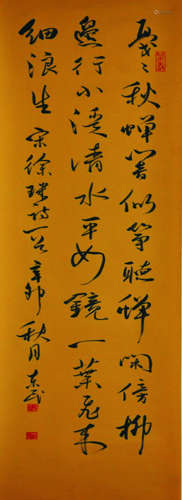 戛々秋蟬響似箏聽蟬閑傍柳
邊行小溪清水平如鏡一葉飛來
細浪生 宋徐璣詩一首 辛卯秋月